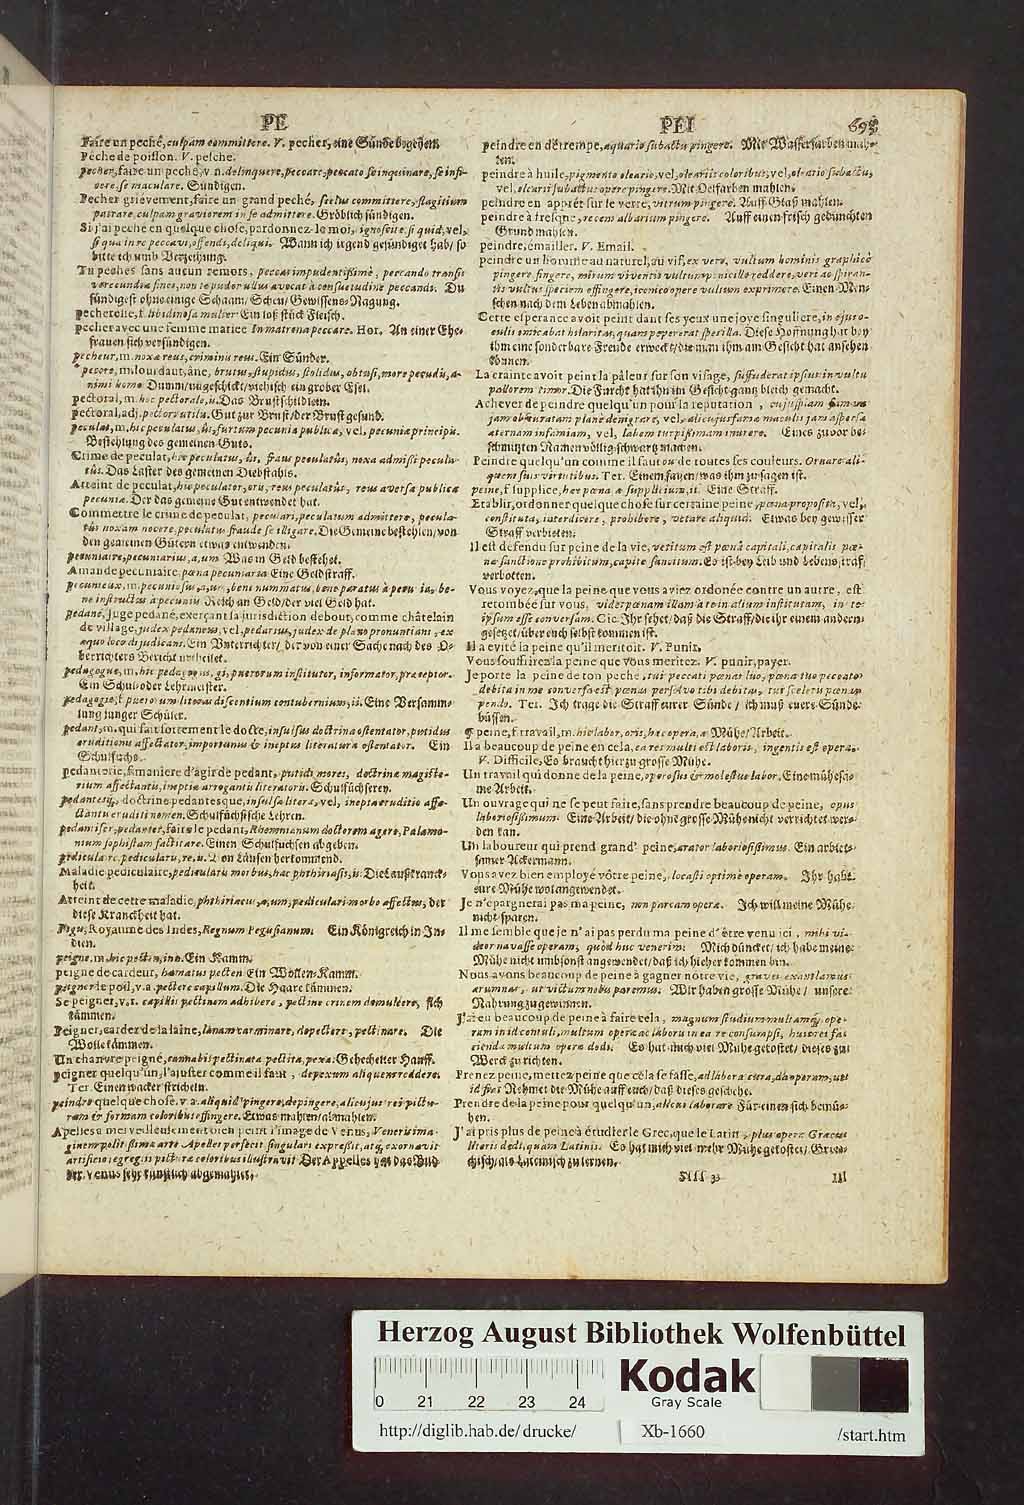 PE
Faire un peché, culpam committere. V. pecher, eine Sünde begehen.
Peche de poisson. V. pesche.
pecher, faire un peché, v. n. delinquere, peccare, peccato se inquinare, se infi-
cere, se maculare. Sündigen.
Pecher grievement, faire un grand peché, scelus committere, flagitium
patrare, culpam graviorem in se admittere. Gröblich sündigen.
Si j'ai peché en quelque chose, pardonnez-le moi, ignoscite si quid, vel,
si qua in re peccavi, offendi, deliqui. Wann ich irgend gesündiget hab/ so
bitte ich umb Verzeihung.
Tu peches sans aucun remors, peccas impudentissimè, peccando transis
verecundiae fines, non te pudor ullus avocat à consuetudine peccandi. Du
sündigest ohne einige Schaam/ Scheu/ Gewissens-Nagung.
pecheresse, f. libidinosa mulier Ein loß stück Fleisch.
pecher avec une femme mariée In matrona peccare. Hor. An einer Ehe-
frauen sich versündigen.
pecheur, m. noxae reus, criminis reus. Ein Sünder.
pecore, m. lourdaut, âne, brutus, stupidus, stolidus, obtusi, more pecudis, a-
nimi homo Dumm/ ungeschickt/ viehisch ein grober Esel.
pectoral, m. hoc pectorale, is. Das Brustschildlein.
pectoral, adj. pectori utilis. Gut zur Brust/ der Brust gesund.
peculat, m. hic peculatus, ûs, furtum pecuniae publicae, vel, pecuniae principis.
Bestehlung des gemeinen Guts.
Crime de peculat, hic peculatus, ûs, fraus peculatûs, noxa admissi pecula-
tûs. Das Laster des gemeinen Diebstahls.
Atteint de peculat, hic peculator, oris, reus peculatûs, reus aversae publicae
pecuniae. Der das gemeine Gut entwendet hat.
Commettre le crime de peculat, peculari, peculatum admittere, pecula-
tûs noxam nocere, peculatus fraude se illigare. Die Gemeine bestehlen/ von
den gemeinen Gütern etwas entwenden.
pecuniaire, pecuniarius, a, um Was in Geld bestehet.
Amande pecuniaire, poena pecuniaria Eine Geldstraff.
pecunieux, m. pecuniosus, a, um, bene nummatus, bene paratus à pecunia, be-
ne instructus à pecuniis Reich an Geld/ der viel Geld hat.
pedané, Juge pedané, exerçant sa jurisdiction debout, comme châtelain
de village, judex pedaneus, vel, pedarius, judex de plano pronuntians, ex
aequo loco dijudicans. Ein Unterrichter/ der von einer Sache nach des O-
berrichters Bericht urtheilet.
pedagogue, m. hic pedagogus, gi, puerorum institutor, informator, praeceptor.
Ein Schul- oder Lehrmeister.
pedagogie, f. puerorum literas discentium contubernium, ii. Eine Versamm-
lung junger Schüler.
pedant, m. qui fait sottement le docte, insulsus doctrinae ostentator, putidus
eruditionis affectator, importunus & ineptus literaturae ostentator. Ein
Schulfuchs.
pedanterie, f. maniere d'agir de pedant, putidi mores, doctrinae magiste-
rium affectantis, ineptiae arrogantis literatoris. Schulfüchserey.
pedantesq;, doctrine pedantesque, insulsae literae, vel, inepta eruditio affe-
ctantis eruditi nomen. Schulfüchsische Lehren.
pedantiser, pedanter, faire le pedant, Rhemnianum doctorem agere, Palaemo-
nium sophistam factitare. Einen Schulfuchsen abgeben.
pediculaire, pedicularis, re, u. Von Läusen herkommend.
Maladie pediculaire, pedicularis morbus, haec phthiriasis, is. Die Lauß kranck-
heit.
Atteint de cette maladie, phthiriacus, a, um, pediculari morbo affectus, der
diese Kranckheit hat.
Pegu, Royaume des Indes, Regnum Pegusianum. Ein Königreich in In-
dien.
peigne, m. hic pecten, inis. Ein Kamm.
peigne de cardeur, hamatus pecten Ein Wollen-Kamm.
peigner le poil, v. a. pectere capillum. Die Haare kämmen.
Se peigner, v. r. capillis pectinem adhibere, pectine crinem demulcere, sich
kämmen.
Peigner, carder de la laine, lanam carminare, depectere, pectinare. Die
Wolle kämmen.
Un chanvre peigné, cannabis pectinata pectita, pexa. Gehechelter Hanff.
peigner quelqu'un, l'ajuster comme il faut, depexum aliquem reddere.
Ter. Einen wacker stricheln.
peindre quelque chose. v. a. aliquid pingere, depingere, alicujus rei pictu-
ram & formam coloribus effingere. Etwas mahlen/ abmahlen.
Apelles a merveilleusement bien peint l'image de Venus, Veneris ima-
ginem politissima arte Apelles perfecit, singulari expressit, atq; exornavit
artificio, egregiis picturae coloribus illustravit Der Appelles hat das Bild
der Venus sehr künstlich abgemahlet.
PEI
693
peindre en détrempe, aquario subactu pingere. Mit Wasserfarben mah-
len.
peindre à huile, pigmento oleario, vel, oleariis coloribus, vel, oleario subactu,
vel, olearii subactus opere pingere. Mit Oelfarben mahlen.
peindre en apprét sur le verre, vitrum pingere. Auff Glaß mahlen.
peindre à fresque, recens albarium pingere. Auff einen frisch gedünchten
Grund mahlen.
peindre, émailler. V. Email.
peindre un homme au naturel, au vif, ex vero, vultum hominis graphicè
pingere, fingere, mirum viventis vultum penicillo reddere, veri ac spiran-
tis vultus speciem effingere, iconico opere vultum exprimere. Einen Men-
schen nach dem Leben abmahlen.
Cette esperance avoit peint dans ses yeux une joye singuliere, in ejus o-
culis emicabat hilaritas, quam pepererat spes illa. Diese Hoffnung hat bey
ihm eine sonderbare Freude erweckt/ die man ihm am Gesicht hat ansehen
können.
La crainte avoit peint la pâleur sur son visage, suffuderat ipsius in vultu
pallorem timor. Die Furcht hat ihn im Gesicht gantz bleich gemacht.
Achever de peindre quelqu'un pour la reputation, cujuspiam famam
jam obscuratam planè denigrare, vel, alicujus famae maculis jam aspersae
aeternam infamiam, vel, labem turpissimam inurere. Eines zuvor be-
schmutzten Namen völlig schwartz machen.
Peindre quelqu'un comme il faut ou de toutes ses couleurs. Ornare ali-
quem suis virtutibus. Ter. Einem sauen/ was ihm zusagen ist.
peine, f. supplice, haec poena ae supplicium, ii. Eine Straff.
Etablir, ordonner quelque chose sur certaine peine, poena proposita, vel,
constituta, interdicere, prohibere, vetare aliquid. Etwas bey gewisser
Straff verbieten.
Il est défendu sur peine de la vie, vetitum est poenâ capitali, capitalis poe-
nae sanctione prohibitum, capite sancitum. Es ist bey Leib und Lebens straf
verbotten.
Vous voyez, que la peine que vous aviez ordonée contre un autre, est
retombée sur vous, vides poenam illam à te in alium institutam, in te
ipsum esse conversam. Cic. Ihr sehet/ daß die Straff/ die ihr einem andern
gesetzt/ über euch selbst kommen ist.
Il a evité la peine qu'il meritoit. V. Punir.
Vous souffrirez la peine que vous meritez. V. punir, payer.
Je porte la peine de ton peche, tui peccati poenas luo, poena tuo peccato
debita in me conversa est poenas persolvo tibi debitas, tui sceleris poenas
pendo. Ter. Ich trage die Straff eurer Sünde/ ich muß euere Sünde
büssen.
¶ peine, f. travail, m. hic labor, oris, haec opera, ae Mühe/ Arbeit.
Il a beaucoup de peine en cela, ea res multi est laboris, ingentis est operae.
V. Difficile, Es braucht hierzu grosse Mühe.
Un travail qui donne de la peine, operosus & molestus labor. Eine mühesa-
me Arbeit.
Un ouvrage qui ne se peut faite, sans prendre beaucoup de peine, opus
laboriosissimum. Eine Arbeit/ die ohne grosse Mühe nicht verrichtet wer-
den kan.
Un laboureur qui prend grand' peine, arator laboriosissimus. Ein arbeit-
samer Ackermann.
Vous avez bien employé vôtre peine, locasti optimè operam. Ihr habt
eure Mühe wol angewendet.
Je n'épargnerai pas ma peine, non parcam operae. Ich will meine Mühe
nicht sparen.
Il me semble que je n'ai pas perdu ma peine d'être venu ici, mihi vi-
deor navasse operam, quod huc venerim. Mich düncket/ ich habe meine
Mühe nicht umbsonst angewendet/ daß ich hieher kommen bin.
Nous avons beaucoup de peine à gagner nôtre vie, graves exantlamus
aerumnas, ut victum nobis paremus. Wir haben grosse Mühe/ unsere
Nahrung zugewinnen.
J'ai eu beaucoup de peine à faire cela, magnum studium multamq; ope-
ram in id contuli, multum operae ac laboris in ea re consumpsi, huic rei fa-
ciendae multum operae dedi. Es hat mich viel Mühe gekostet/ dieses zu
Werck zu richten.
Prenez peine, mettez peine que cela se fasse, adlabora cura, da operam, ut
id fiat Nehmet die Mühe auff euch/ daß dieses geschehe.
Prendre de la peine pour quelqu'un, alicui laborare Für einen sich bemü-
hen.
J'ai pris plus de peine à étudier le Grec, que le Latin, plus operae Graecis
literis dedi, quam Latinis. Es hat mich viel mehr Mühe gekostet/ Grie-
chisch/ als Lateinisch zu lernen.
Herzog August Bibliothek Wolfenbüttel
0 21 22 23 24
Kodak
Gray Scale
http://diglib.hab.de/drucke/
Xb-1660
/start.htm